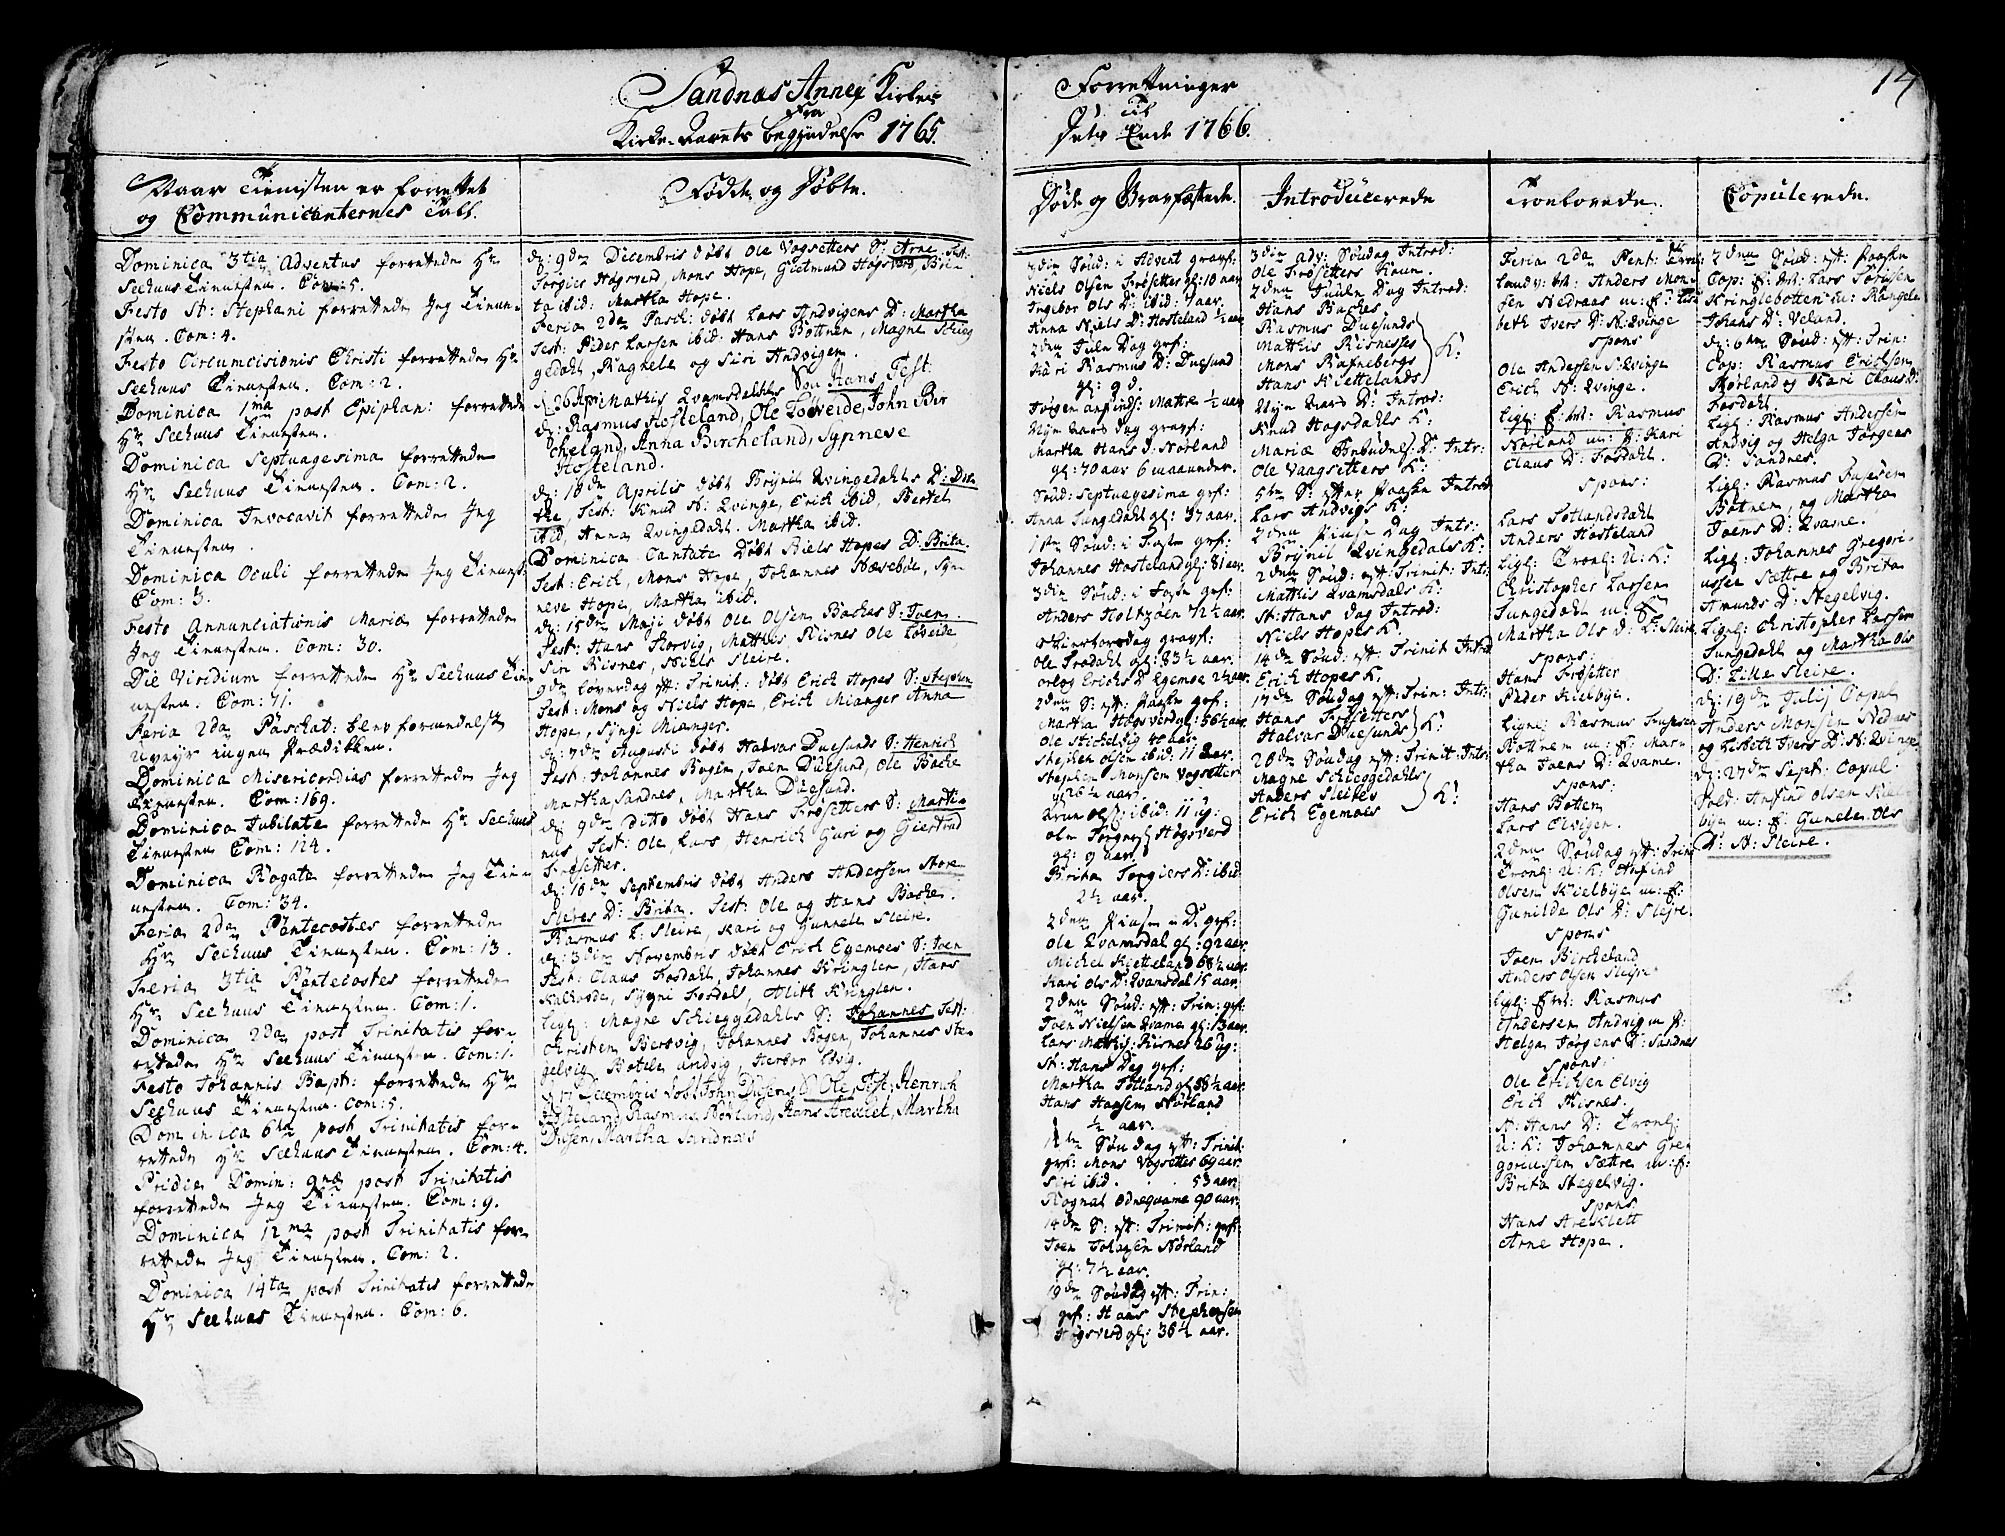 Sandnæs Annex Kirkes
Fra
Kirke-Aarets begyndelse 1765.
Forrettninger
Til
Dets Ende 1766.
14
Naar Tienisten er forrettet
og Communicanternes Tall.
Dominica 3tia Adventus forrettede Hr
Seehuus Tienesten. Com: 5.
Festo St: Stephani forrettede Jeg Tiene-
sten. Com: 4.
Festo Circumcisionis Christi forrettede Hr
Seehuus Tienesten. Com: 2.
Dominica 1ma post Epiphan: forrettede
Hr Seehuus Tienesten.
Dominica Septuagesima forrettede
Hr Seehuus Tienesten. Com: 2.
Dominica Invocavit forrettede Jeg
Tienesten.
Dominica Oculi forrettede Jeg Tienest:
Com: 3.
Festo Annunciationis Mariæ forrettede
Jeg Tienesten. Com: 30.
Die Viridium forrettede Hr Seehuus Tie-
nesten. Com: 71.
Feria 2da Paschat: blev formedelst
Prædiken.
Dominica Misericordias forrettede Jeg
Tienesten. Com: 169.
Dominica Jubilate forrettede Hr Seehuus
Tienesten Com: 124.
Dominica Rogate forrettede Jeg Tien-
nesten. Com: 34.
Feria 2da Pentecostes forrettede
Hr Seehuus Tienesten. Com: 13.
Feria 3tia Pentecostes forrettede
Hr Seehuus Tienesten. Com: 1.
Dominica 2da post Trinitatis for-
rettede Hr Seehuus Tienesten. Com: 1.
Festo Johannis Bapt: forrettede Hr
Seehuus Tienesten. Com: 5.
Dominica 6ta post Trinitatis for-
rettede Hr Seehuus Tienesten. Com: 4.
Pridie Domin: 9næ post Trinitatis
forrettede Jeg Tienesten. Com: 9.
Dominica 12ma post Trinitatis for-
rettede Jeg Tienesten. Com: 2.
Dominica 14ta post Trinitatis forrettede
Hr Seehuus Tienesten. Com: 6.
Fødde og Døbte.
d: 9de Decembris døbt Ole Vogsetters S: Arne Test:
Torgies Høgsverd Mons Hope, Giertrud Høgsverd, Bri-
ta ibid: Martha Hope.
Feria 2da Pasch: døbt Lars Andvigens D: Martha
Test: Peder Larsen ibid: Hans Bottnen, Magne Schieg
gedahl, Raghele og Siri Andvigen.
d: 26 Apri Mathis Qvamsdahls Søn Hans, Test
d: Rasmus Hosteland, Ole Løveide, John Bir
cheland, Anna Bircheland, Synneve
Hosteland.
d: 18de Aprilis døbt Brynil Qvingedahls D: Dor-
the Test: Knud St: Qvinge, Erich ibid, Bertel
ibid, Anna Qvingedahl. Martha ibid.
Dominica Cantate Døbt Niels Hopes D: Brita.
Test: Erich, Mons Hope, Johannes Næsebøe, Syn-
neve Hope, Martha ibid.
d: 15de Maji døbt Ole Olsen Backes S: Joen.
Test: Hans Storvig, Matthis Risnes Ole Løveide,
Siri Risnes, Niels Sleire.
9de Løverdag eft: Trinit: døbt Erich Hopes S: Stephen
Test: Mons og Niels Hope, Erich Mianger Anna
Hope, Syngi Mianger.
d: 7de Augusti døbt Halvor Duesunds S: Henrich
Test: Johannes Bogen, Joen Duesund, Ole Backe
Martha Sandnes, Martha Duesund.
d: 9de Ditto døbt Hans Frøsetters S: Marti-
nus, Test: Ole, Lars, Henrich Guri og Giertrud
Frøsetter.
d: 18de Septembris døbt Anders Andersen Store
Sleires D: Brita. Test: Ole og Hans Backen.
Rasmus L: Sleire, Kari og Gunnele Sleire.
d: 3die Novembris døbt Erich Egemoes S: Joen
Test: Claus Fosdahl, Johannes Kringlen, Hans
Kalhovde, Sygni Fosdal, Alith Kringlen.
Ligl: Magne Schieggedahls S: Johannes Test:
Christen Bersvig, Johannes Bogen, Johannes Ste-
gelvig Botele Andvig, Herbor Elvig.
d: 17 Decembris Døbt John Dusens S: Ole, Test: Henrich
Hosteland, Rasmus Nørland, Hans Areklet, Martha
Dusen, Martha Sandnæs
Døde og Gravfæstede.
3die Sønd: i Advent gravf:
Niels Olsen Frøsetter gl: 10 aar
Ingebor Ols D: ibid: 7 aar.
Anna Niels D: Hosteland ½ aar
2den Jule Dag grf:
Kari Rasmus D: Duesund
gl: 9 d.
Jørgen Anfinds: Mattre ½ aar
Nye Aars Dag gravf:
Martha Hans D: Nørland
gl: 70 aar 6 maaneder.
Sønd: Septuagesima grf:
Anna Sungedahl gl: 37 aar.
1ste Sønd: i Faste grf:
Johannes Hosteland gl: 81 aar.
3die Sønd: i Faste grf:
Anders Holtzøen 72½ aar
Skiertorsdag gravf:
Ole Frødahl gl: 83½ aar.
Erichs D: Egemoe 2½ aar
2den S: eft: Paaske grf:
Martha Høgsverd gl: 56½ aar
Ole Stichelvig 40 aar.
Stephen Olsen ibid: 11 aar.
Stephen Monsen Vogsetter
gl 26½ aar.
Arne Ols: ibid: 11 ug:
Ole Torgiers: Høgsverd
gl: 9 aar.
Brita Torgiers D: ibid:
2½ aar.
2den Pintse D: grf:
Ole Qvamsdal gl: 92 aar.
Michel Kietteland 68½ aar.
Kari Ols D: Qvamsdal 15 aar.
2den Sønd: eft: Trin: grf:
Joen Nielsen Qvame gl: 13 aar.
Lars Mathis: Risnes 26 ug:
St: Hans Dag grf:
Martha Totland gl 58½ aar.
Hans Hansen Nørland
½ aar.
12te Søndag eft: Trinit:
grf: Mons Vogsetter 69 aar.
Siri ibid. 53 aar
Rognal Odneqvame 90 aar.
14de S: eft: Trinit: grf:
Joen Johansen Nørland
gl: 7½ aar.
19de Søndag eft: Trin:
grf: Hans Stephensen
Høgsverd gl: 36½ aar.
Introducerede
3die adv: Søndag Introd:
Ole Frøsetters Kone.
2den Juule Dag Introd:
Hans Backes
Rasmus Duesunds
Matthis Risneses
Mons Rafnebergs
Hans Kiettelands
K:
Nye Aars D: Introd:
Knud Hogsdahls K:
Mariæ Bebudes: D: Intr:
Ole Vaagsetters K:
5te S: efter Paaske Introd
Lars Andvigs K:
2den Pintse Dag Intr:
Brynil Qvingedals K:
2den Sønd: eft: Trinit: Int:
Mathis Qvamsdals K:
St: Hans Dag Introd:
Niels Hopes K:
14de Sønd: eft: Trinit Introd
Erich Hopes K.
17de Søndag eft: Trin: Intr:
Hans Frøsetters
Halvor Duesunds
K:
26de Søndag eft: Trinit: Intr:
Magne Schieggedahls
Anders Sleires
Erich Egemoes
K:
Troelovede.
Feria 2da Pent: Trol:
Landv: K: Anders Mon-
sen Nedraas m: P: Lisa
beth Ivers D: N: Qvinge
Spons
Ole Andersen S: Qvinge
Erich N: Qvinge.
Ligl: E: K: Rasmus
Nørland m: P: Kari
Claus D: Fosdahl.
Spons:
Lars Totlandsdahl
Anders Hosteland
Ligl: Troel: U: K:
Christopher Larsen
Sungedahl m: P:
Martha Ols D: L: Sleire
Spons:
Hans Frøsetter
Peder Kielbye.
Ligl: Rasmus
Bottnen m: P: Mar-
tha Joens D: Qvame.
Spons:
Hans Botten
Lars Elvigen.
2den Søndag eft: Trin:
Troel: U: K: Anfind
Olsen Kielbye m: P:
Gunilde Ols D: Sleire
Spons
Joen Bircheland
Anders Olsen Sleire
Ligl: E: K: Rasmus
Andersen Andvig m P:
Helga Jørgens D: Sandnes
Spons:
Ole Erichsen Elvig
Erich Risnes.
St: Hans D: Troel:
U: K: Johannes Gre-
goriussen Sættre m: P:
Brita Stegelvig.
Spons:
Hans Areklett
Arne Hope.
Copulerede.
2den Sønd: eft: Paaske
Cop: E: K: Lars Torisen
Kringlebotten m: Rangele
Johans D: Veland.
d: 6te Sønd: eft: Trin:
Cop: Rasmus Erichsen
Nørland og Kari Claus D:
Fosdahl.
Ligl: Rasmus Andersen
Andvig og Helga Jørgens
D: Sandnes.
Ligl: Rasmus
Bottnen, og Martha
Joens D: Qvame.
Ligl: Johannes Gregori-
ussen Sættre og Brita
Amunds D: Stegelvig.
Ligl: Christopher Larsen
Sungedahl og Martha Ols
D: Lille Sleire.
d: 19de Julij Copul
Anders Monsen Nedraas
og Lisbeth Ivers D: N: Qvinge.
d: 27de Sept: Copul:
Sold: Anfind Olsen Kiel-
bye m: P: Gunele Ols
D: St: Sleire.